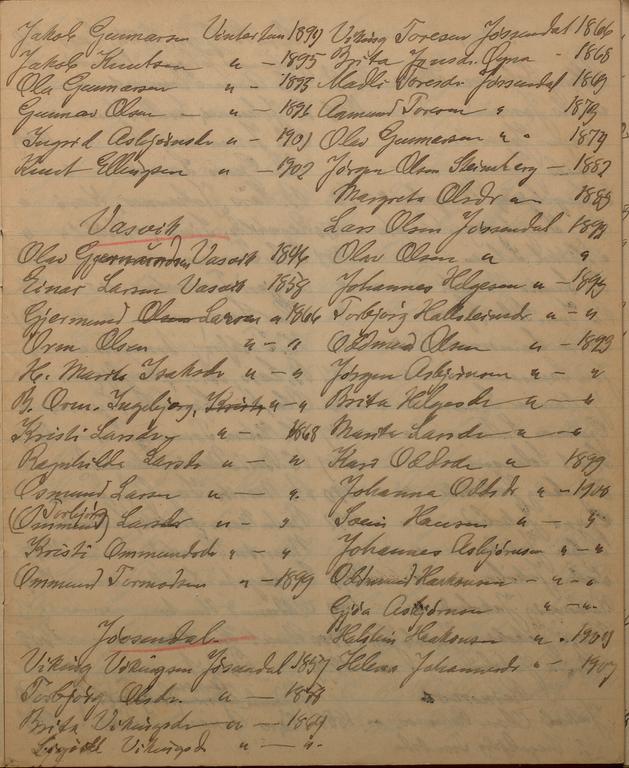 Jakob Gunnarsen Vinterhun 1894
Jakob Knutsen " - 1895
Ola Gunnarsen " - 1893
Gunnar Olsen - " 1896
Ingrid Asbjørnsdr " - 1901
Knut Ellingsen " - 1902
Vasvik
Olav Vasvik 1846
Einar Larsen Vasvik 1858
Gjermund Olsen Larsen " 1866
Orm Olsen " - "
H. Marita Isaksdr " - "
B. Orm. Ingebjørg, Kristi " - "
Kristi Larsdr " - 1868
Ragnhilda Larsdr " - "
Osmund Larsen " - "
Torbjørg
(Ommund) Larsdr " - "
Kristi Ommundsdr " - "
Ommund Tormodsen " - 1899
Jøsendal
Viking Vikingsen Jøsendal 1857
Torbjørg Olsdr. " - 1858
Brita Vikingsdr - " - 1869
Vikingsdr " - "
Viking Toresen Jøssendal 1866
Brita Øyna - 1868
Madli Toresdr Jøssendal 1869
Aamund Toresen " 1879
Olav Gunnarsen " " 1879
Jørgen Olsen Steinberg - 1882
Margreta Olsdr " - 1889
Lars Olsen Jøssendal 1899
Olav Olsen " "
Johannes Helgesen " - 1899
Torbjørg Hallsteinsdr " - "
Oddmund Olsen " - 1899
Jørgen Asbjørnsen " - "
Brita Helgesdr " - "
Marita Larsdr - "
Kari Oddsdr " 1899
Johanna Oddsdr " - 1900
Svein Hansen " - "
Johannes Asbjørnsen " - "
Oddmund Haakonsen - " - "
Gjøa Asbjørnsen " - "
Halstein Haakonsen " - 1904
Helena Johannesdr " - 1907